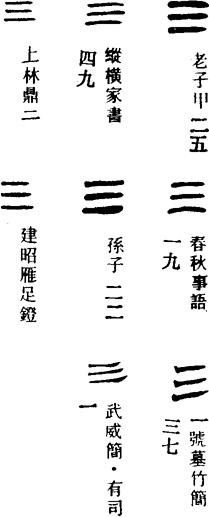 三
老子甲 二五
三
春秋事語
一九
三
一號墓竹簡
三七
三
縱橫家書
四九
三
孫子 二二
三
武威簡·有司
一
三
上林鼎二
三
建昭雁足鐙